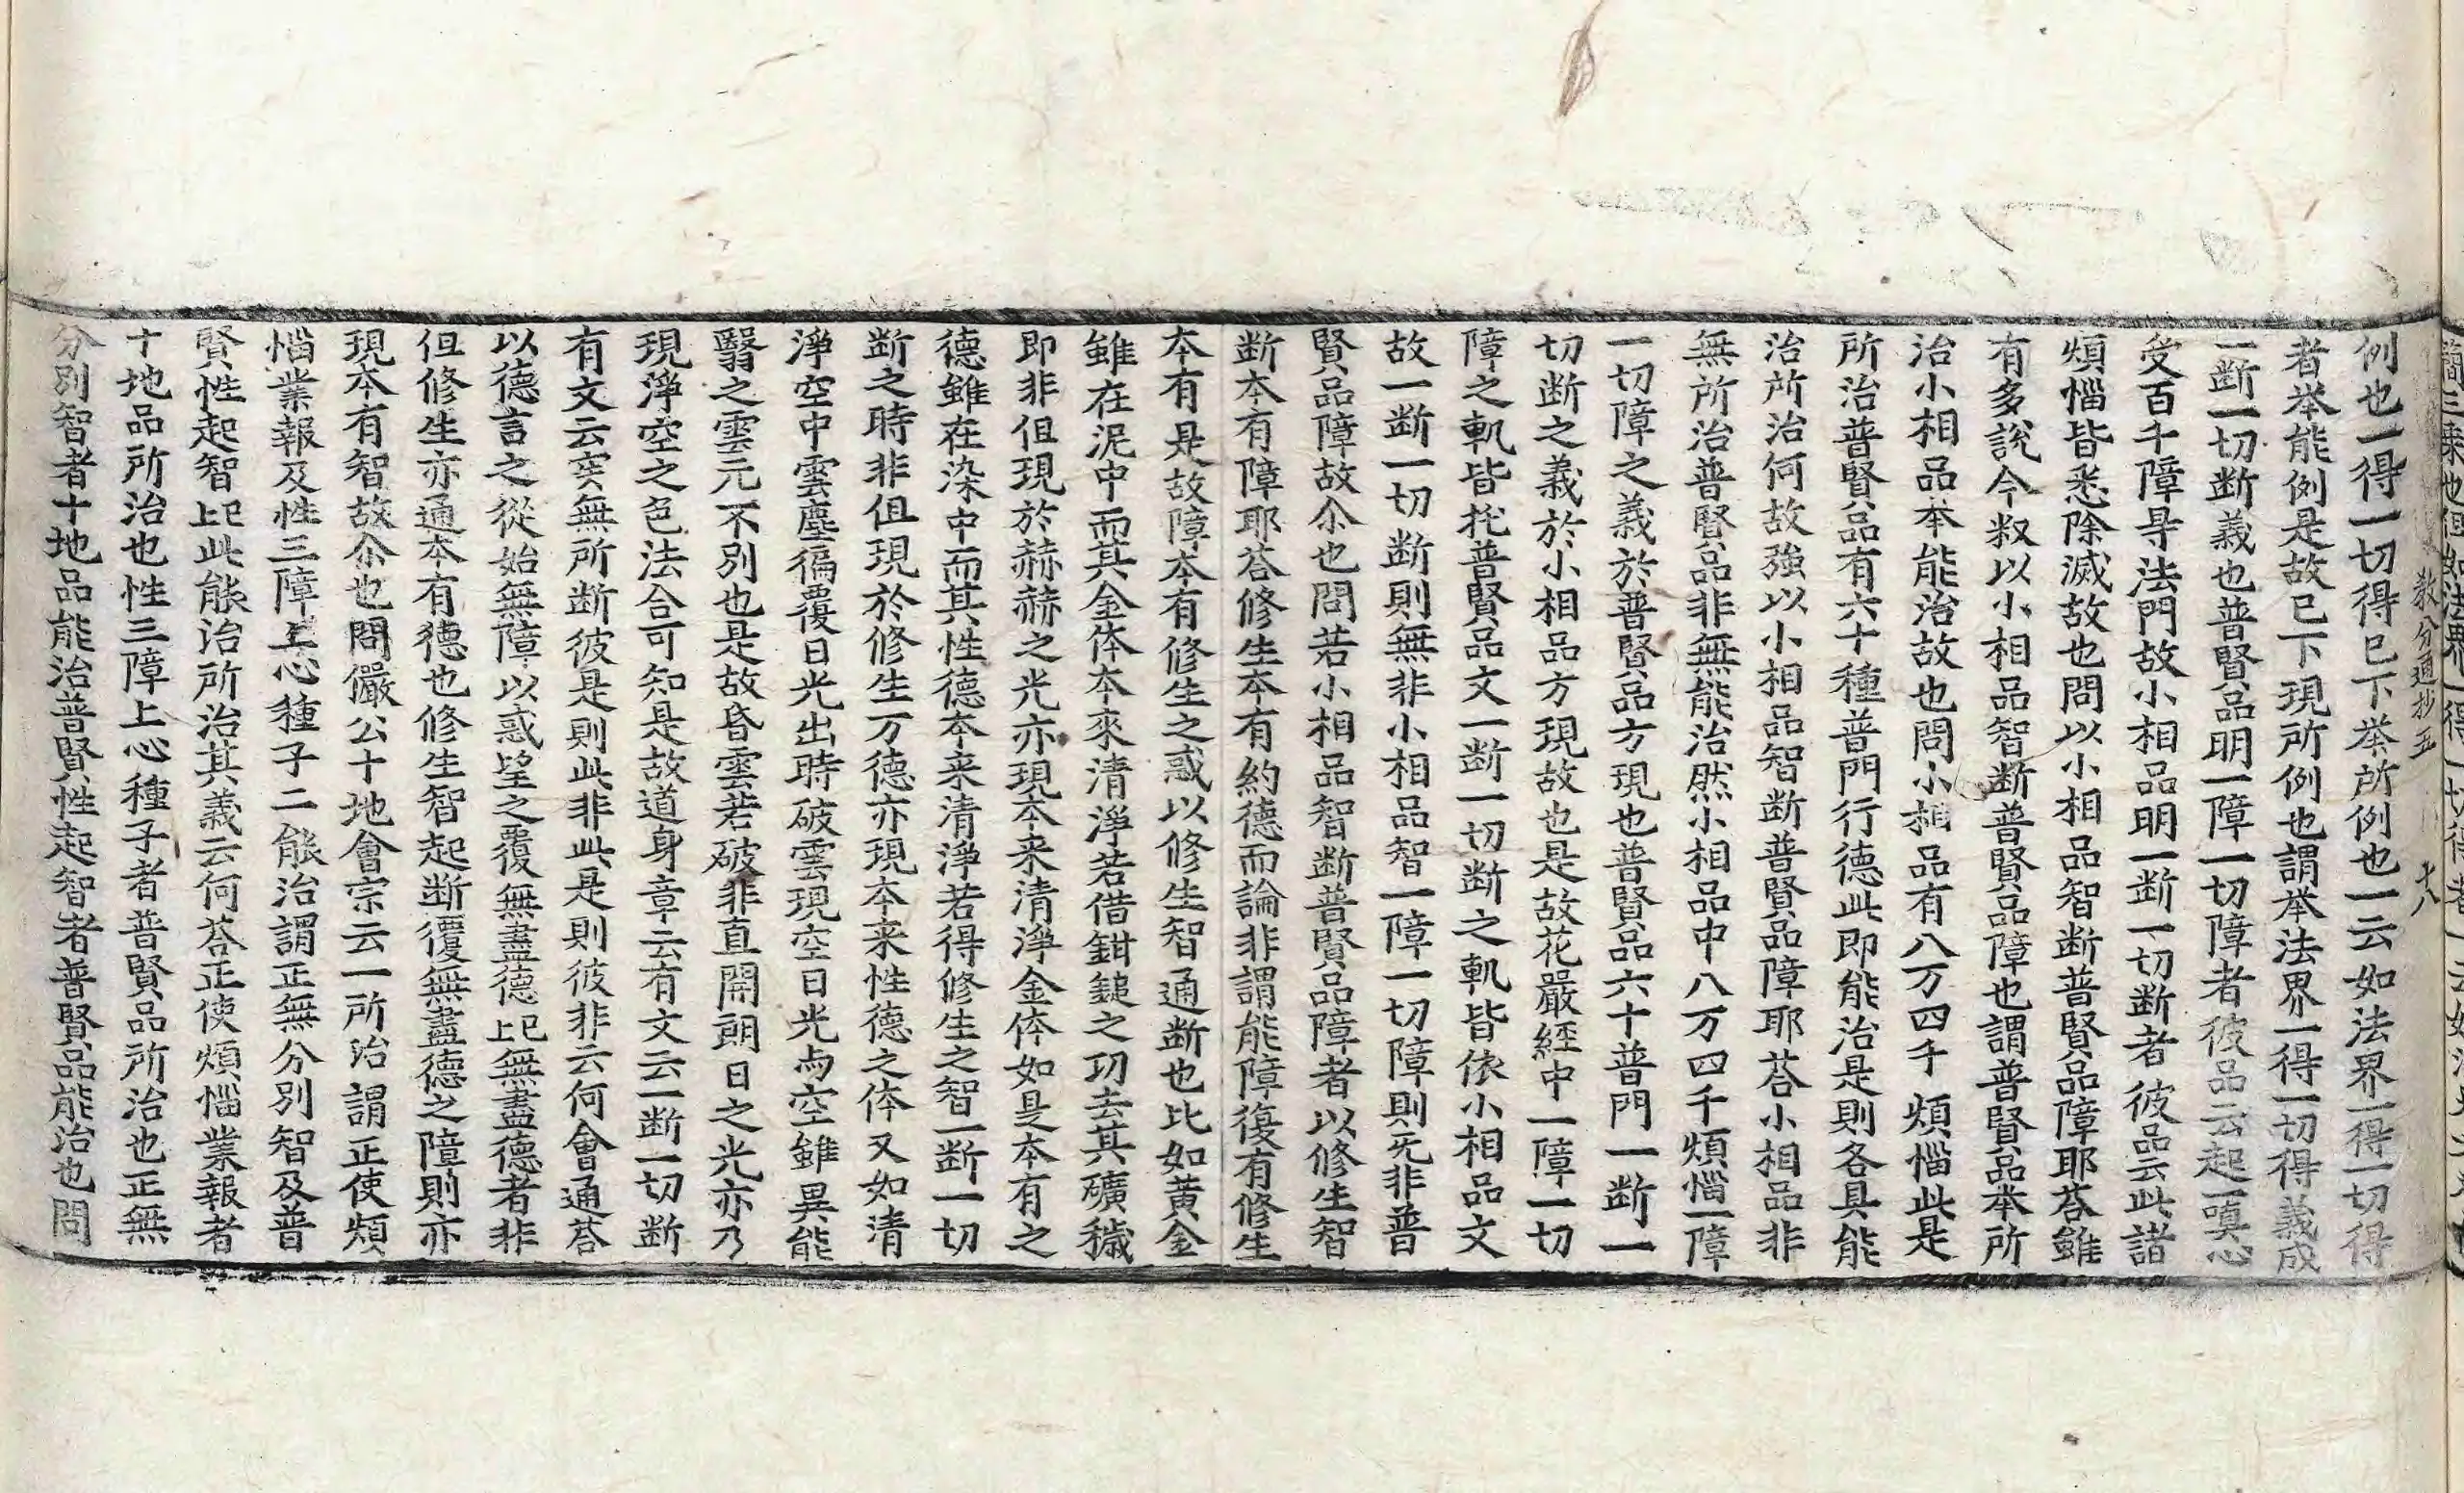 教分通抄五 十八
例也一得一切得已下举所例也一云如法界一得一切得
者举能例是故已下現所例也謂举法界一得一切得義成
一断一切断義也普賢品明一障一切障者彼品云起一嗔心
受百千障㝵法門故小相品明一断一切断者彼品云此諸
煩惱皆悉除滅故也問以小相品智断普賢品障耶荅雖
有多說今叙以小相品智断普賢品障也謂普賢品本所
治小相品本能治故也問小相品有八万四千煩惱此是
所治普賢品有六十種普門行德此即能治是則各具能
治所治何故强以小相品智断普賢品障耶荅小相品非
無所治普賢品非無能治然小相品中八万四千煩惱一障
一切障之義於普賢品方現也普賢品六十普門一断一
切断之義於小相品方現故也是故花嚴經中一障一切
障之軌皆扥普賢品文一断一切断之軌皆依小相品文
故一断一切断則無非小相品智一障一切障則无非普
賢品障故尒也問若小相品智断普賢品障者以修生智
断本有障耶荅修生本有約德而論非謂能障復有修生
本有是故障本有修生之惑以修生智通断也比如黃金
雖在泥中而其金体本來清淨若借鉗鎚之功去其礦穢
即非但現於赫赫之光亦現本来清淨金体如是本有之
德雖在染中而其性德本来清淨若得修生之智一断一切
断之時非但現於修生万德亦現本来性德之体又如清
淨空中雲塵徧覆日光出時破雲現空日光与空雖異能
翳之雲元不別也是故昏雲若破非直開朗日之光亦乃
現淨空之色法合可知是故道身章云有文云一断一切断
有文云実無所断彼是則此非此是則彼非云何會通荅
以德言之從始無障以惑望之覆無盡德上已無盡德者非
但修生亦通本有德也修生智起断覆無盡德之障則亦
現本有智故尒也問儼公十地會宗云一所治謂正使煩
惱業報及性三障上心種子二能治謂正無分別智及普
賢性起智上已此能治所治其義云何荅正使煩惱業報者
十地品所治也性三障上心種子者普賢品所治也正無
分別智者十地品能治普賢性起智者普賢品能治也問